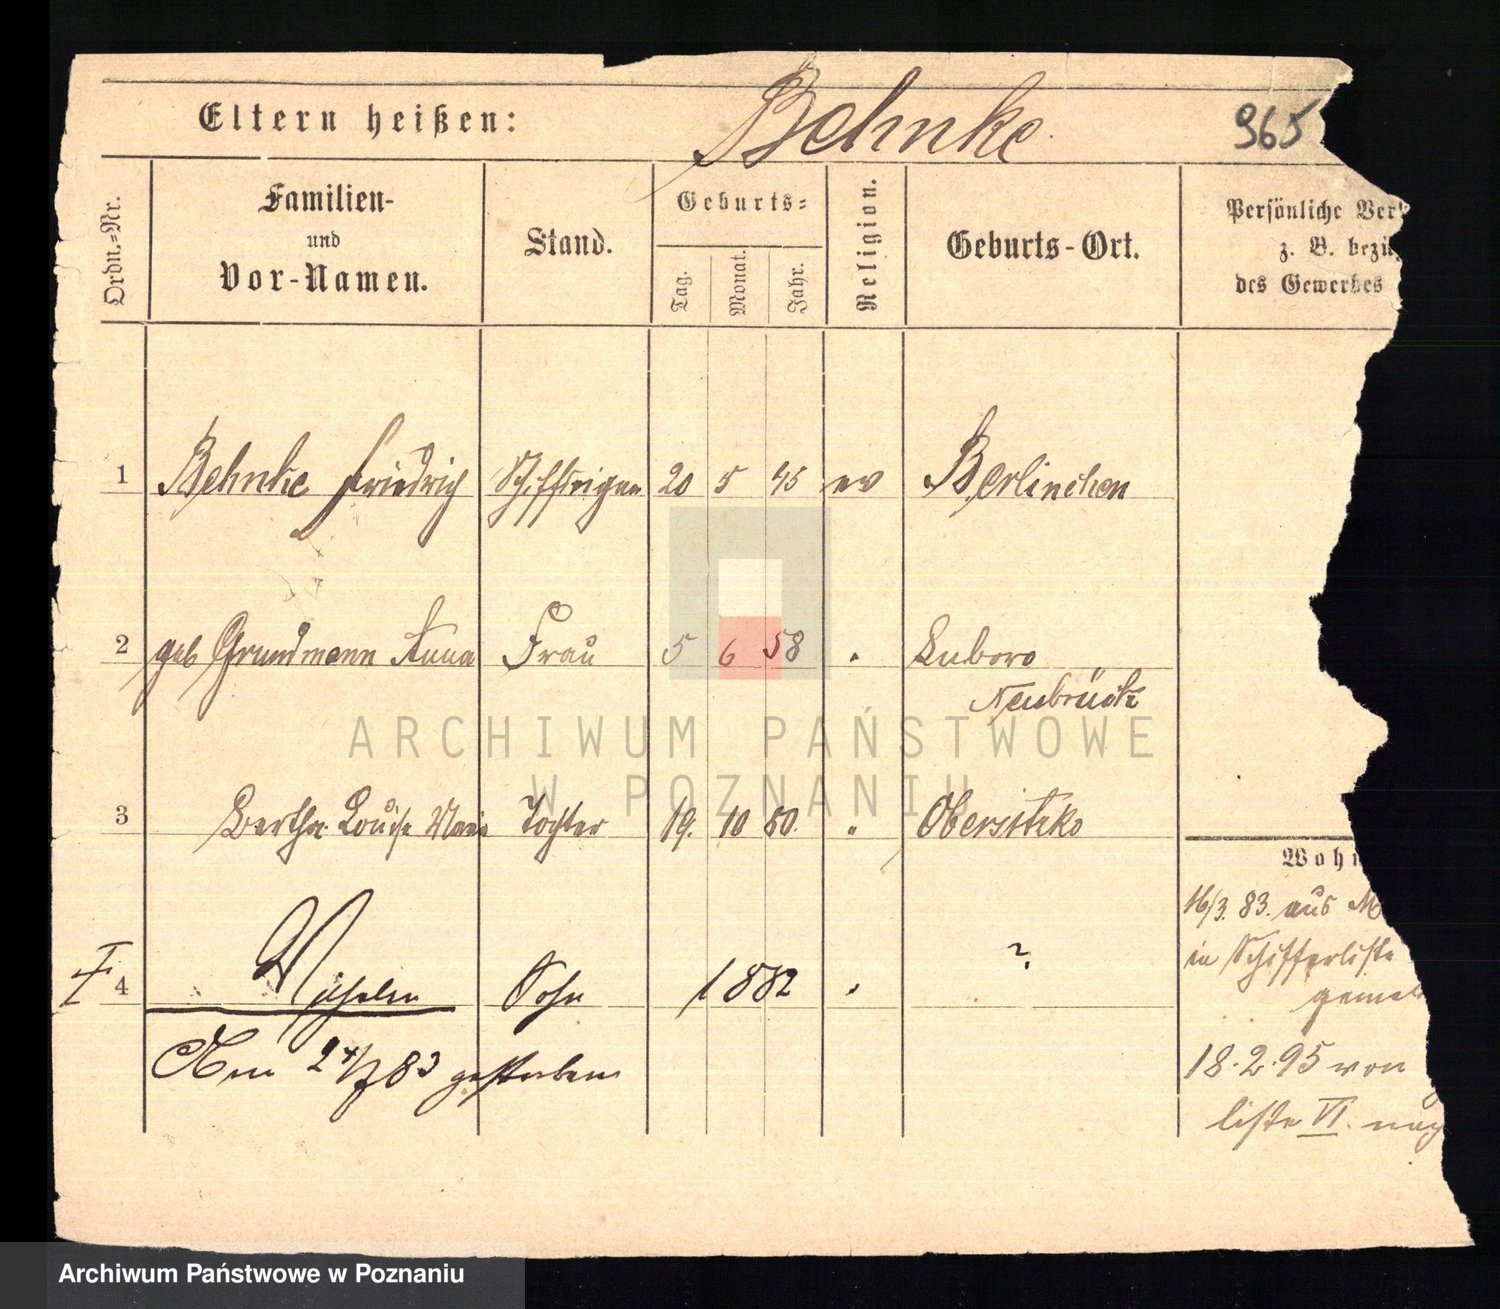 Eltern heißen: Behnke 965
Ordn.=Nr. Familien- und Vor-Namen. Stand. Geburts= Tag. Monat. Jahr. Religion. Geburts-Ort. Persönliche Ver
z. B. bezüg
des Gewerbes
1 Behnke Friedrich Schiffseigen 20 5 45 ev Berlinchen
2 geb Grundmann Anna Frau 5 6 58 " Luboro
Neubrück
ARCHIWUM PAŃSTWOWE
W POZNANIU
3 Bertha Louise Marie Tochter 19. 10 80. " Obersitzko
Wohn
16/3. 83. aus M
in Schifferliste
4 Wilhelm Sohn 1882 " ?
gemel
Am 24/7 83 gestorben
18. 2. 95 von
liste VI. nach
Archiwum Państwowe w Poznaniu